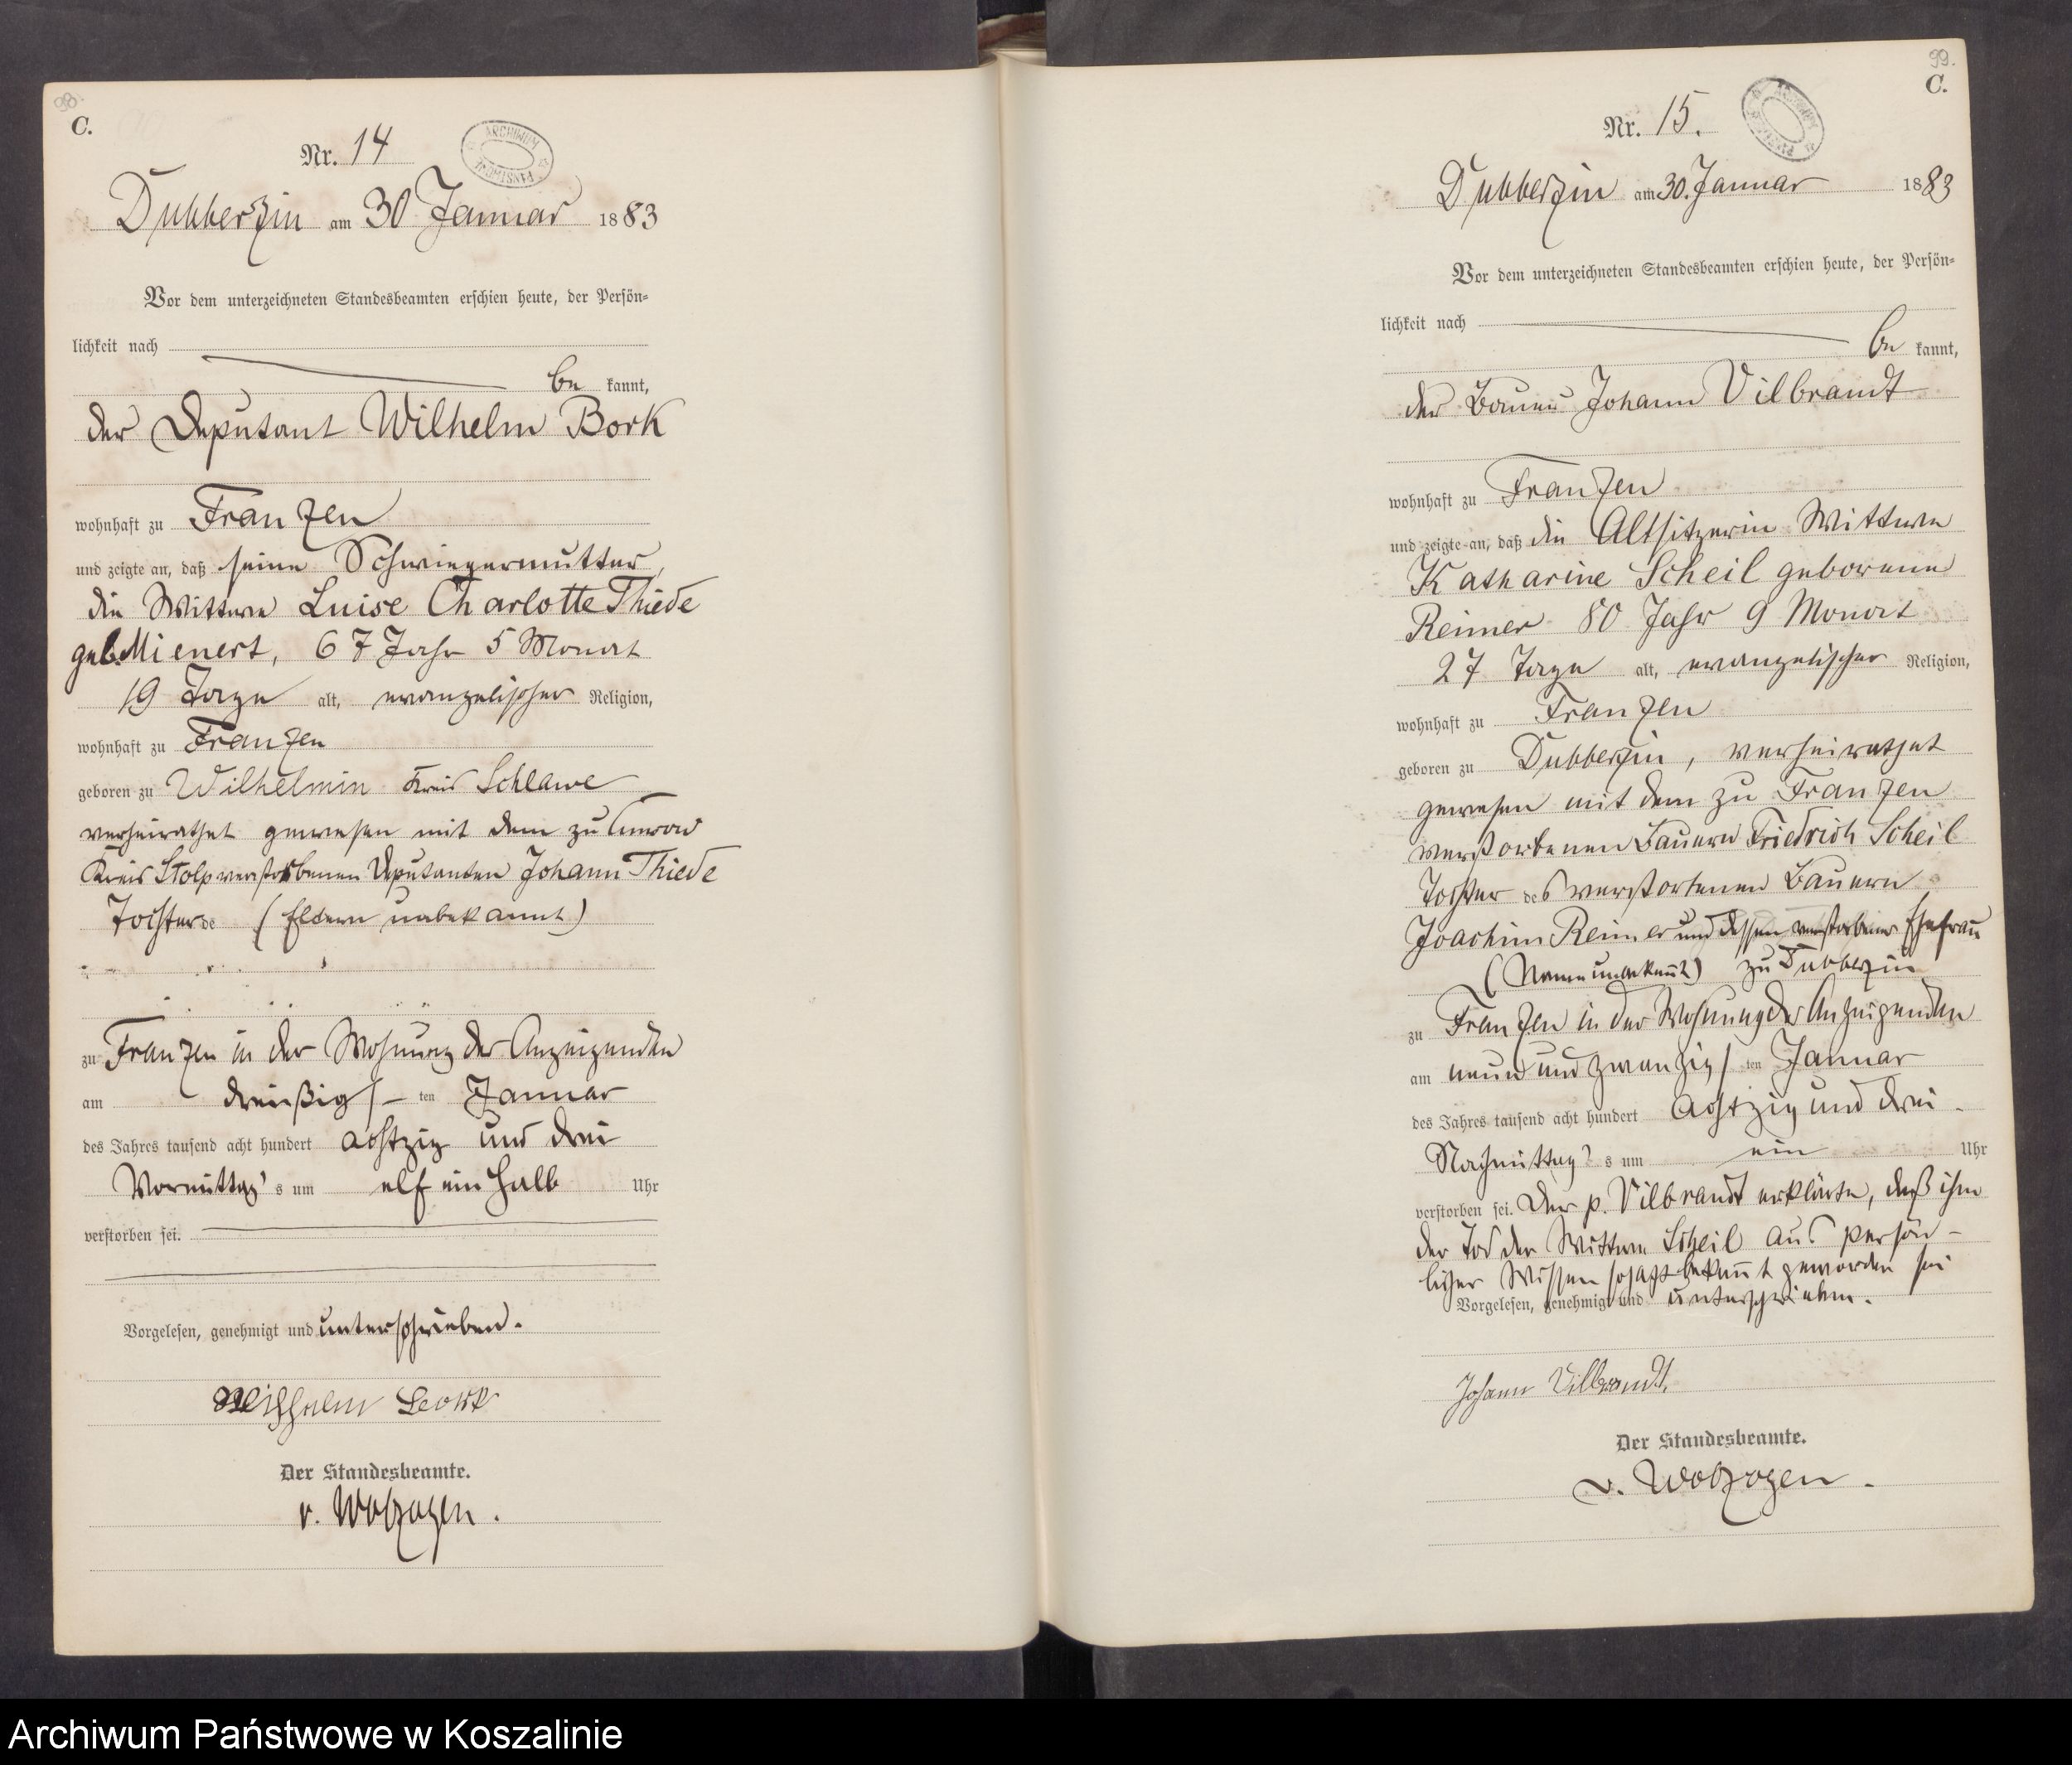 98.
C.
Nr. 14
ARCHIWUM PAŃSTWOWE
Dubberzin am 30 Januar 1883
Vor dem unterzeichneten Standesbeamten erschien heute, der Persön-
lichkeit nach
be kannt,
der Deputant Wilhelm Bork
wohnhaft zu Franzen
und zeigte an, daß seine Schwiegermutter,
die Wittwe Luise Charlotte Thiede
geb. Mienert, 67 Jahr 5 Monat
19 Tage alt, evangelischer Religion,
wohnhaft zu Franzen
geboren zu Wilhelmin Kreis Schlawe
verheirathet gewesen mit dem zu
Kreis Stolp verstorbenen Deputanten Johann Thiede
Tochter de (Eltern unbekannt)
zu Franzen in der Wohnung des Anzeigenden
am dreißig ten Januar
des Jahres tausend acht hundert achtzig und drei
Vormittag s um elf ein halb Uhr
verstorben sei.
Vorgelesen, genehmigt und unterschrieben.
Wilhelm Bork
Der Standesbeamte.
v. Wolzogen.
99.
C.
Nr. 15.
ARCHIWUM PAŃSTWOWE
Dubberzin am 30. Januar 1883
Vor dem unterzeichneten Standesbeamten erschien heute, der Persön-
lichkeit nach
be kannt,
der Bauer Johann Vilbrandt
wohnhaft zu Franzen
und zeigte an, daß die Altsitzerin Wittwe
Katharine Scheil geborene
Reimer 80 Jahr 9 Monat
27 Tage alt, evangelischer Religion,
wohnhaft zu Franzen
geboren zu Dubberzin, verheirathet
gewesen mit dem zu Franzen
verstorbenen Bauern Friedrich Scheil
Tochter des verstorbenen Bauern
Joachim Reimer und dessen verstorbener Ehefrau
(Name unbekannt) zu Dubberzin
zu Franzen in der Wohnung des Anzeigenden
am neun und zwanzig ten Januar
des Jahres tausend acht hundert achtzig und drei
Nachmittag s um ein Uhr
verstorben sei. Der p. Vilbrandt erklärte, daß ihm
der Tod der Wittwe Scheil aus persön-
licher Wissenschaft bekannt geworden sei
Vorgelesen, genehmigt und unterschrieben.
Johann Vilbrandt.
Der Standesbeamte.
v. Wolzogen.
Archiwum Państwowe w Koszalinie